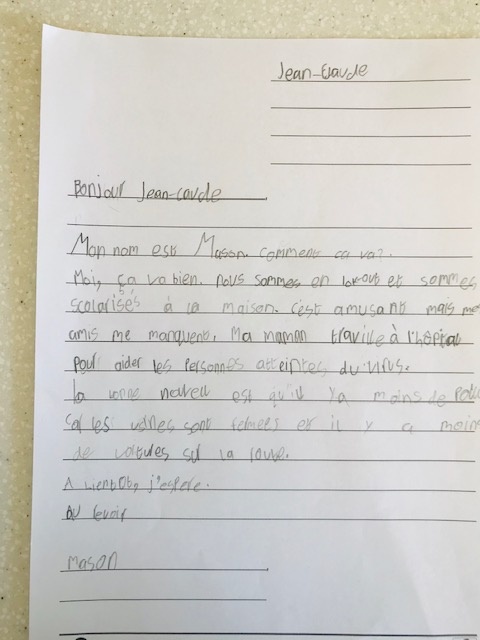 Jean-Claude
Bonjour Jean-caude
Mon nom est Mason. Comment ca va?
Moi, ça va bien. nous sommes en et sommes
scolarisés à la maison. c'est amusant mais mes
amis me manquent. Ma maman traville à l'hôpital
pour aider les personnes atteintes du virus.
la bonne est qu'il ya moins de
les usines sont fermées et il y a moins
de voitures sur la route.
A bientôt, j'espère.
Au revoir
Mason